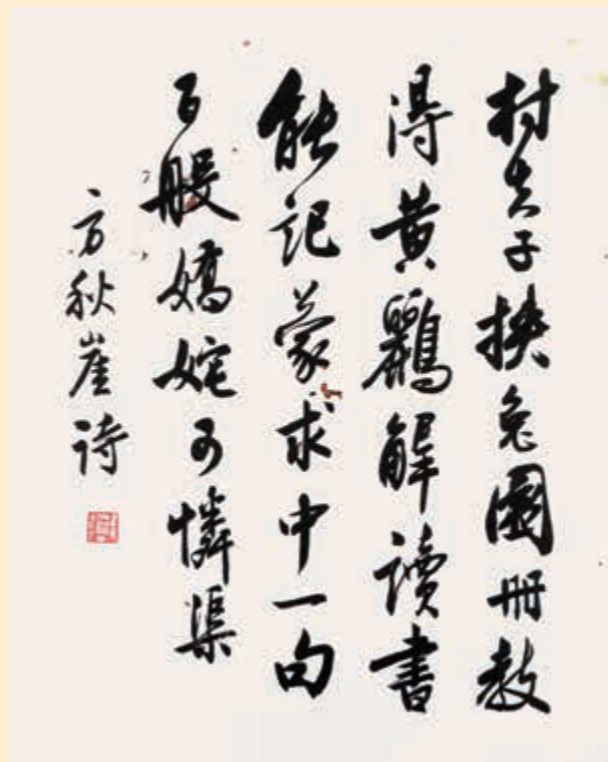 村夫子挟兔園冊教
得黃鸝解讀書
能記蒙求中一句
百般嬌姹可憐渠
方秋崖诗